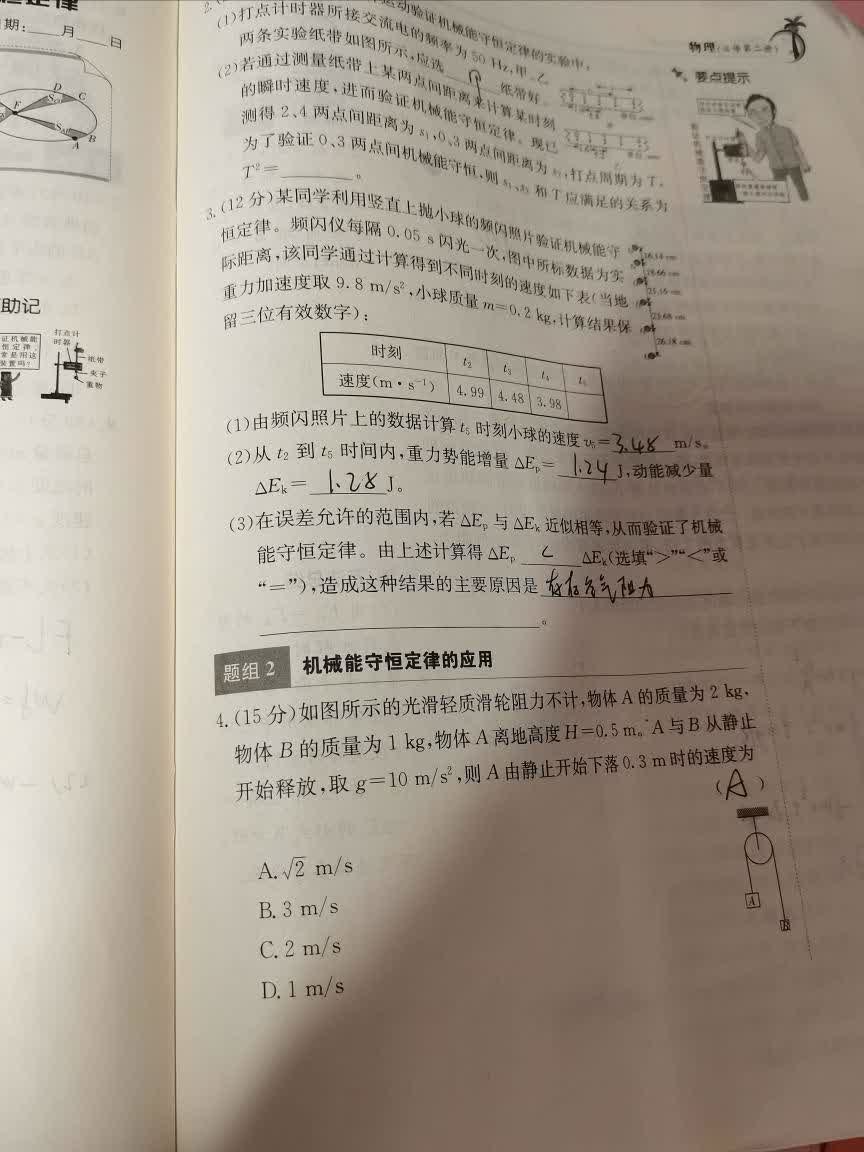 期:____月____日
D
C
F
B
A
助记
打点计
时器
纸带
夹子
重物
物理(必修第二册)
要点提示
运动验证机械能守恒定律的实验中,
(1)打点计时器所接交流电的频率为50 Hz,甲、乙
两条实验纸带如图所示,应选______纸带好。
(2)若通过测量纸带上某两点间距离来计算某时刻
的瞬时速度,进而验证机械能守恒定律。现已
测得2、4两点间距离为s₁,0、3两点间距离为s₂,打点周期为T,
为了验证0、3两点间机械能守恒,则s₁、s₂和T应满足的关系为
T²=________。
3.(12分)某同学利用竖直上抛小球的频闪照片验证机械能守
恒定律。频闪仪每隔0.05 s闪光一次,图中所标数据为实
际距离,该同学通过计算得到不同时刻的速度如下表(当地
重力加速度取9.8 m/s²,小球质量m=0.2 kg,计算结果保
留三位有效数字):
26.18 cm
时刻 t₂ t₃ t₄ t₅
速度(m·s⁻¹) 4.99 4.48 3.98
(1)由频闪照片上的数据计算t₅时刻小球的速度v₅=3.48 m/s。
(2)从t₂到t₅时间内,重力势能增量ΔEₚ=1.24J,动能减少量
ΔEₖ=1.28J。
(3)在误差允许的范围内,若ΔEₚ与ΔEₖ近似相等,从而验证了机械
能守恒定律。由上述计算得ΔEₚ < ΔEₖ(选填“>”“<”或
“=”),造成这种结果的主要原因是 存在空气阻力
________。
题组2 机械能守恒定律的应用
4.(15分)如图所示的光滑轻质滑轮阻力不计,物体A的质量为2 kg,
物体B的质量为1 kg,物体A离地高度H=0.5 m。A与B从静止
开始释放,取g=10 m/s²,则A由静止开始下落0.3 m时的速度为
(A)
A.√2 m/s
B.3 m/s
C.2 m/s
D.1 m/s
A
B